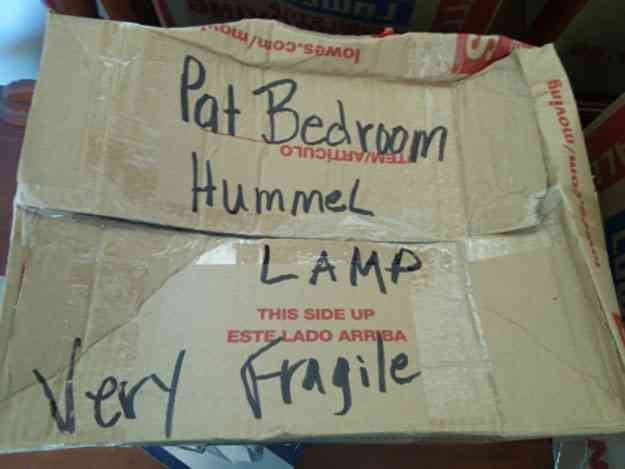 lowes.com/movi
Pat Bedroom
ITEM/ARTICULO
Hummel
LAMP
THIS SIDE UP
ESTE LADO ARRIBA
Very Fragile